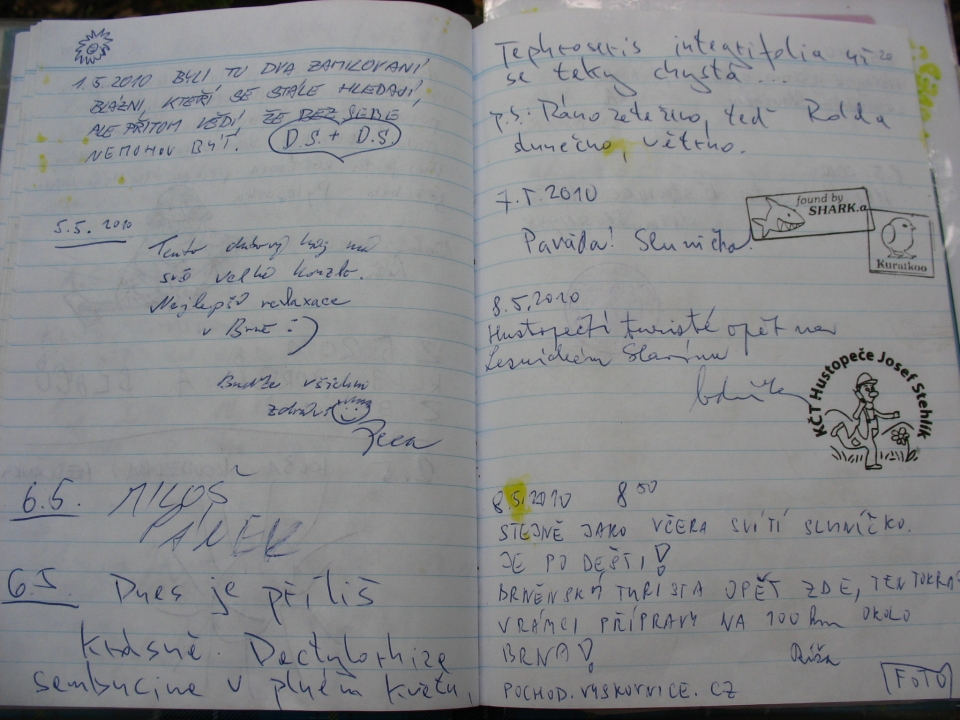 1.5.2010 BYLI TU DVA ZAMILOVANÍ
BLÁZNI, KTEŘÍ SE STÁLE HLEDAJÍ
ALE PŘITOM VĚDÍ ŽE BEZ SEBE
NEMOHOU BÝT. D.S. + D.S
5.5. 2010
Tento dubový háj má
své velké kouzlo.
Nejlepší relaxace
v Brně :-)
Buďte všichni
zdrávi
6.5. MILOŠ
PÁNEK
6.5 Dnes je příliš
krásně. Dactylorhiza
sambucina v plném květu,
Tephroseris integrifolia už
se taky chystá...
p.s.: Ráno zataženo, teď Rolda
slunečno, větrno.
7.5.2010
found by
SHARK.a
Paráda! Sluníčko.
Kuratkoo
8.5.2010
Hustopečtí turisté opět na
Lesnickém Slavínu
KČT Hustopeče Josef Stehlík
8.5.2010 8 50
STEJNĚ JAKO VČERA SVÍTÍ SLUNÍČKO.
JE PO DEŠTI!
BRNĚNSKÝ TURISTA OPĚT ZDE, TENTOKRÁT
V RÁMCI PŘÍPRAVY NA 100 km OKOLO
BRNA! Ríša
POCHOD.VYSKOVNICE.CZ FOTO